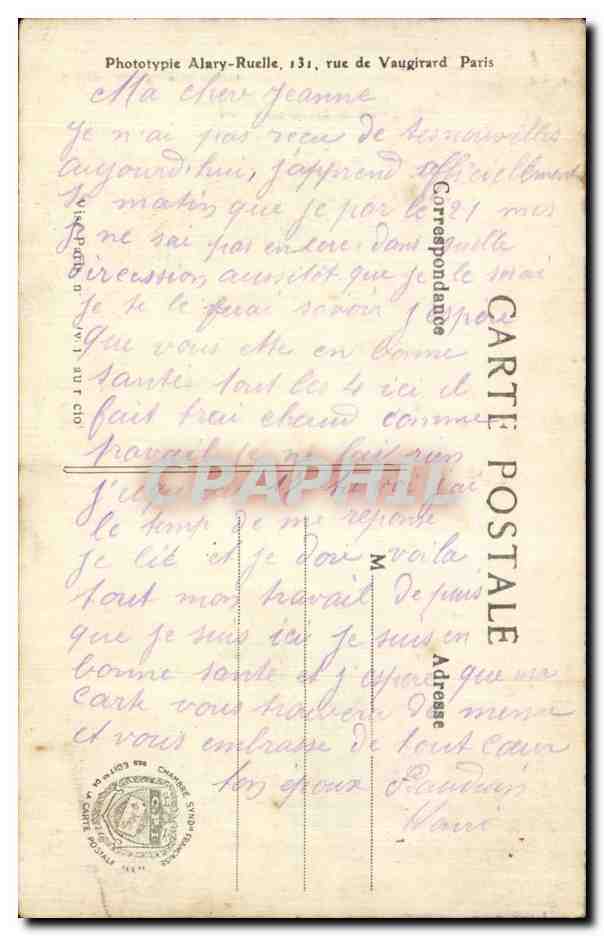 Phototypie Alary-Ruelle, 131, rue de Vaugirard Paris
Ma cher Jeanne
je n'ai pas recu de tes nouvelles
aujourd'hui, j'apprend officiellement
matin que je par le 21 mes
je ne sai pas encore dans quelle
dircession aussitot que je le sorai
je te le ferai savoir j'espere
que vous ette en bonne
santé tout les 4 ici il
fait trai chaud comme
travail je ne fait rien
j'es
le temp de me repose
je lit et je dore voila
tout mon travail depuis
que je suis ici je suis en
bonne sante et j'espere que ma
carte vous trouvera de meme
et vous embrasse de tout cœur
ton époux
Henri
CARTE POSTALE
Correspondance
M
Adresse
CHAMBRE SYND. FRANÇAISE
CARTE POSTALE
CPAPHIL